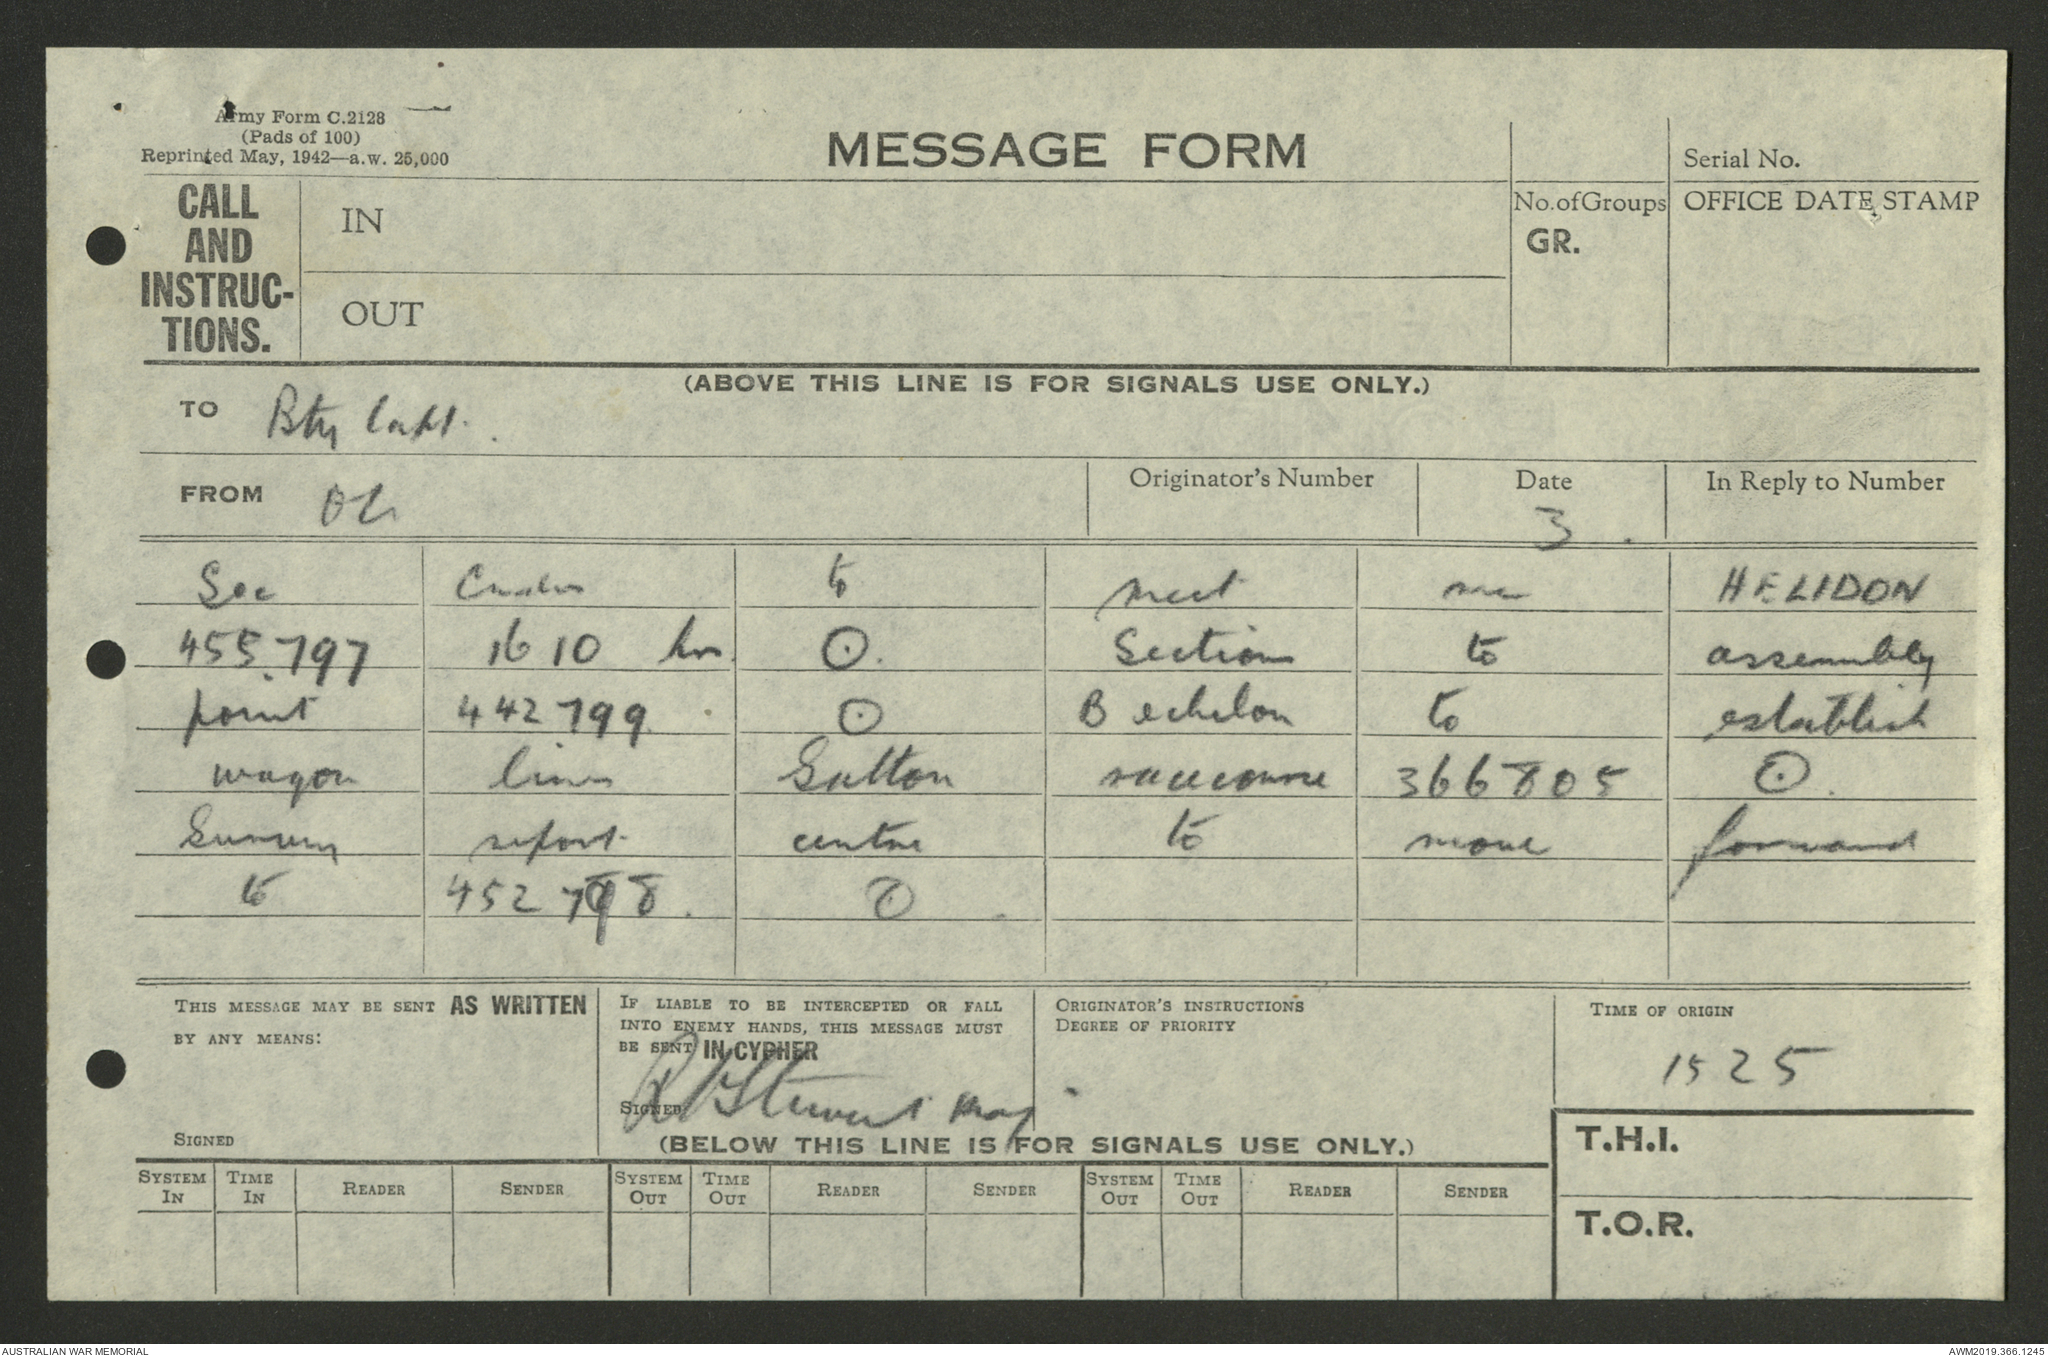 Army Form C.2128
(Pads of 100)
Reprinted May, 1942—a.w. 25,000
MESSAGE FORM
Serial No.
CALL AND INSTRUC-TIONS.
IN
OUT
No.ofGroups
GR.
OFFICE DATE STAMP
(ABOVE THIS LINE IS FOR SIGNALS USE ONLY.)
TO Bty Capt.
FROM OC
Originator's Number
Date
3.
In Reply to Number
Sec Cmdrs to meet me HELIDON
455797 1610 hrs ⊙ Sections to assembly
point 442799 ⊙ B echelon to establish
wagon lines Gatton racecourse 366805 ⊙
Survey report centre to move forward
to 452798 ⊙
THIS MESSAGE MAY BE SENT AS WRITTEN
BY ANY MEANS:
SIGNED
IF LIABLE TO BE INTERCEPTED OR FALL
INTO ENEMY HANDS, THIS MESSAGE MUST
BE SENT IN CYPHER
SIGNED Stewart Maj
ORIGINATOR'S INSTRUCTIONS
DEGREE OF PRIORITY
TIME OF ORIGIN
1525
(BELOW THIS LINE IS FOR SIGNALS USE ONLY.)
T.H.I.
T.O.R.
SYSTEM IN TIME IN READER SENDER SYSTEM OUT TIME OUT READER SENDER SYSTEM OUT TIME OUT READER SENDER
AUSTRALIAN WAR MEMORIAL
AWM2019.366.1245